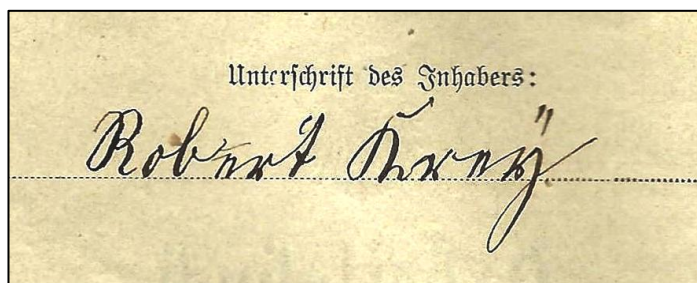 Unterschrift des Inhabers:
Robert Kreÿ